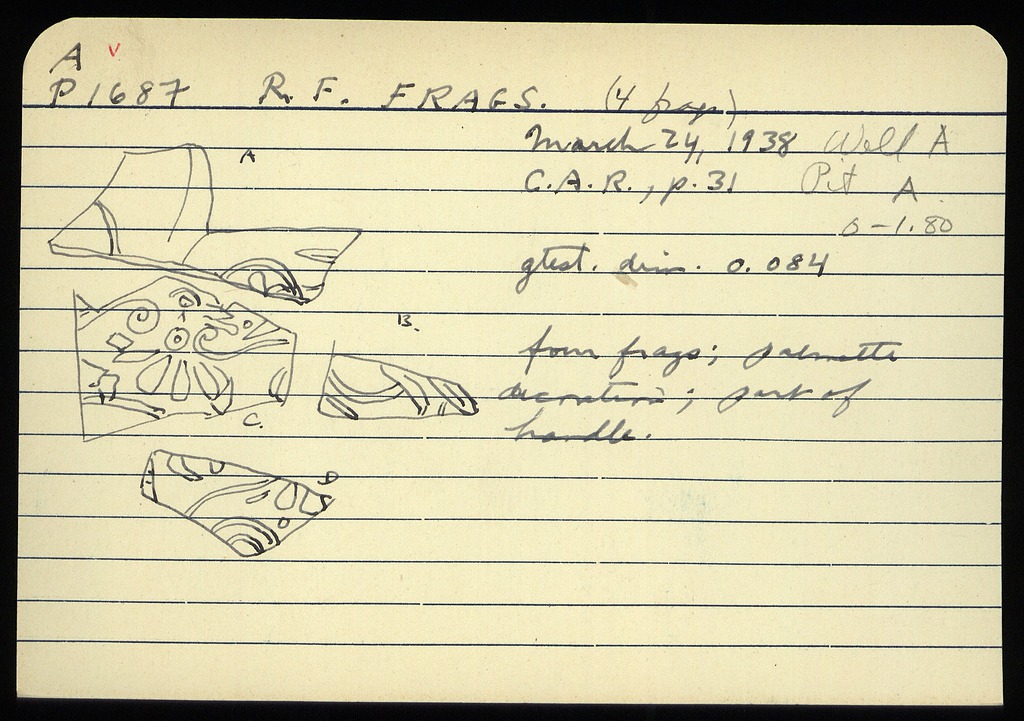 A v
P1687 R. F. FRAGS. (4 frags)
March 24, 1938 Well A
C.A.R., p. 31 Pit A
0-1.80
gtest. dim. 0.084
four frags; palmette
decoration; part of
handle.
A
B.
C.
D